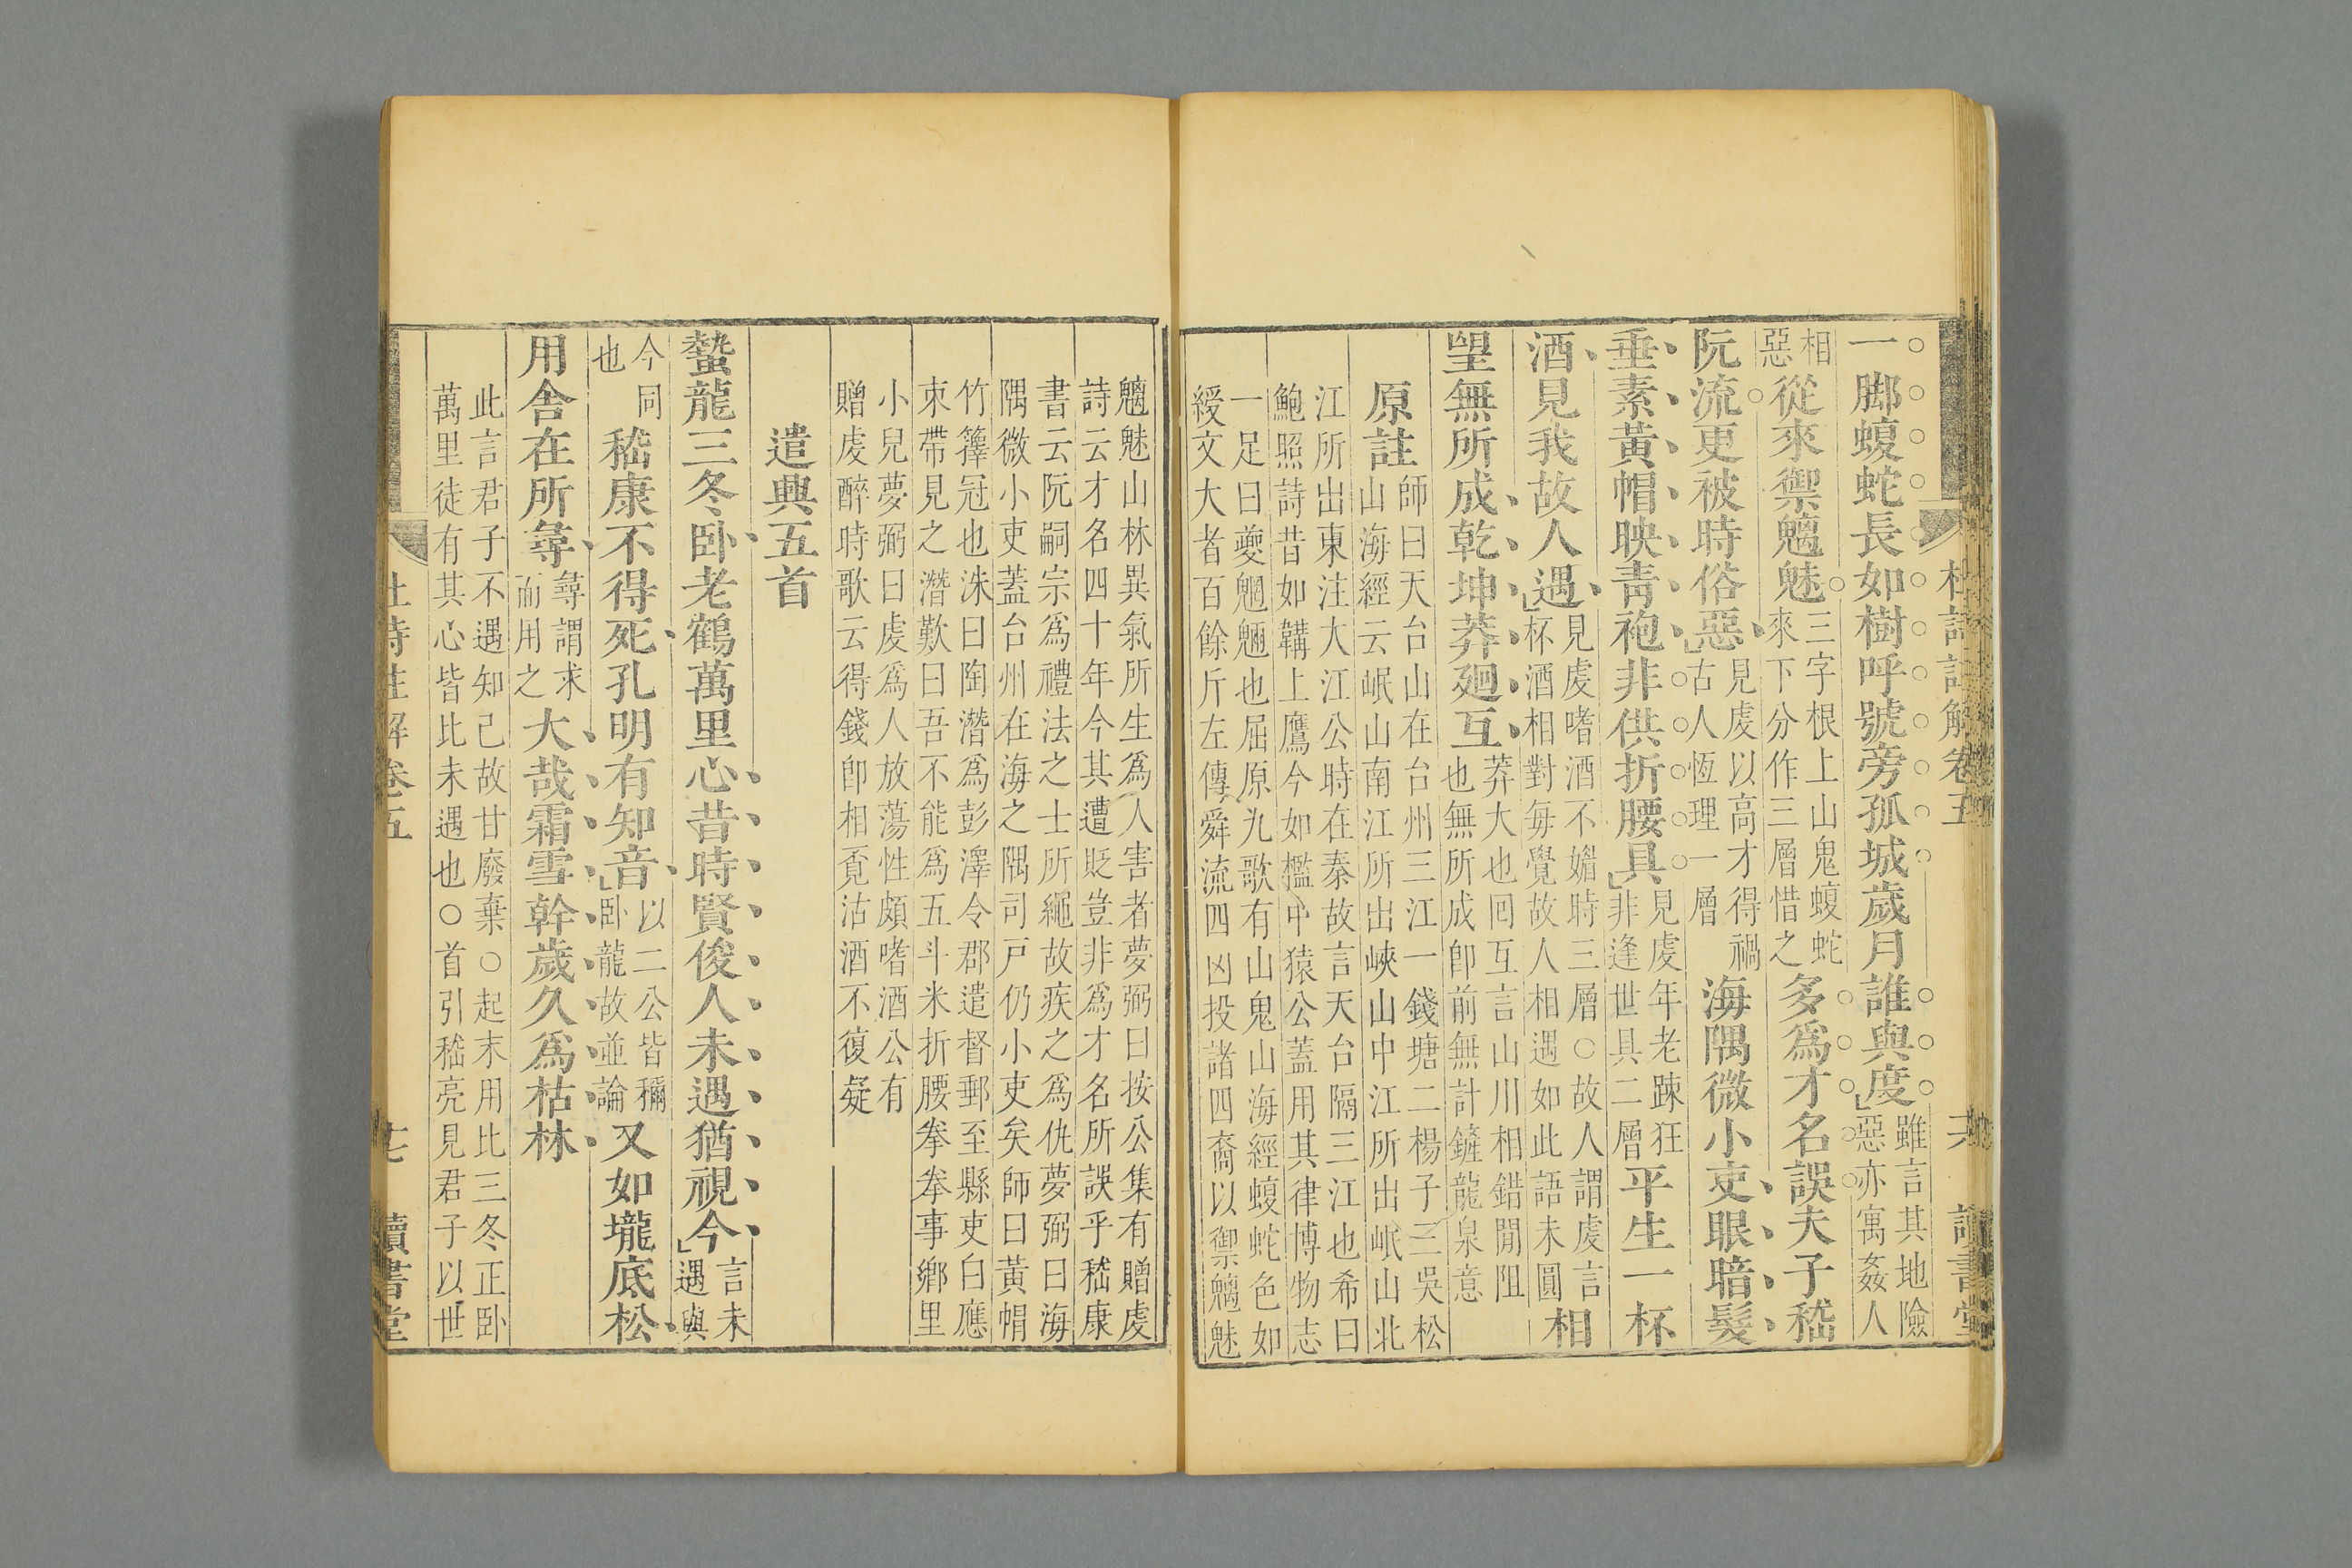 一脚蝮蛇長如樹呼號旁孤城歲月誰與度雖言其地險惡亦寓姦人
相惡從來禦魑魅三字根上山鬼蝮蛇來下分作三層惜之多爲才名誤夫子嵇
阮流更被時俗惡見虔以高才得禍古人恆理一層海隅微小吏眼暗髮
垂素黃帽映靑袍非供折腰具見虔年老踈狂非逢世具二層平生一杯
酒見我故人遇見虔嗜酒不媚時三層○故人謂虔言杯酒相對每覺故人相遇如此語未圓相
望無所成乾坤莽廻互莽大也囘互言山川相錯閒阻也無所成卽前無計鏟龍泉意
原註師曰天台山在台州三江一錢塘二楊子三吳松
山海經云岷山南江所出峽山中江所出岷山北
江所出東注大江公時在秦故言天台隔三江也希曰
鮑照詩昔如韝上鷹今如檻中猿公蓋用其律博物志
一足曰夔魍魎也屈原九歌有山鬼山海經蝮蛇色如
綬文大者百餘斤左傳舜流四凶投諸四裔以禦魑魅
魑魅山林異氣所生爲人害者夢弼曰按公集有贈虔
詩云才名四十年今其遭貶豈非爲才名所誤乎嵇康
書云阮嗣宗爲禮法之士所繩故疾之爲仇夢弼曰海
隅微小吏蓋台州在海之隅司戸仍小吏矣師曰黃帽
竹籜冠也洙曰陶潛爲彭澤令郡遣督郵至縣吏白應
束帶見之潛歎曰吾不能爲五斗米折腰拳拳事鄉里
小兒夢弼曰虔爲人放蕩性頗嗜酒公有
贈虔醉時歌云得錢卽相覔沽酒不復疑
遣興五首
蟄龍三冬卧老鶴萬里心昔時賢俊人未遇猶視今言未遇與
今同也嵇康不得死孔明有知音以二公皆稱卧龍故並論又如壠底松
用舍在所尋尋謂求而用之大哉霜雪幹歲久爲枯林
此言君子不遇知己故甘廢棄○起末用比三冬正卧
萬里徒有其心皆比未遇也○首引嵇亮見君子以世
杜詩註解卷五
讀書堂